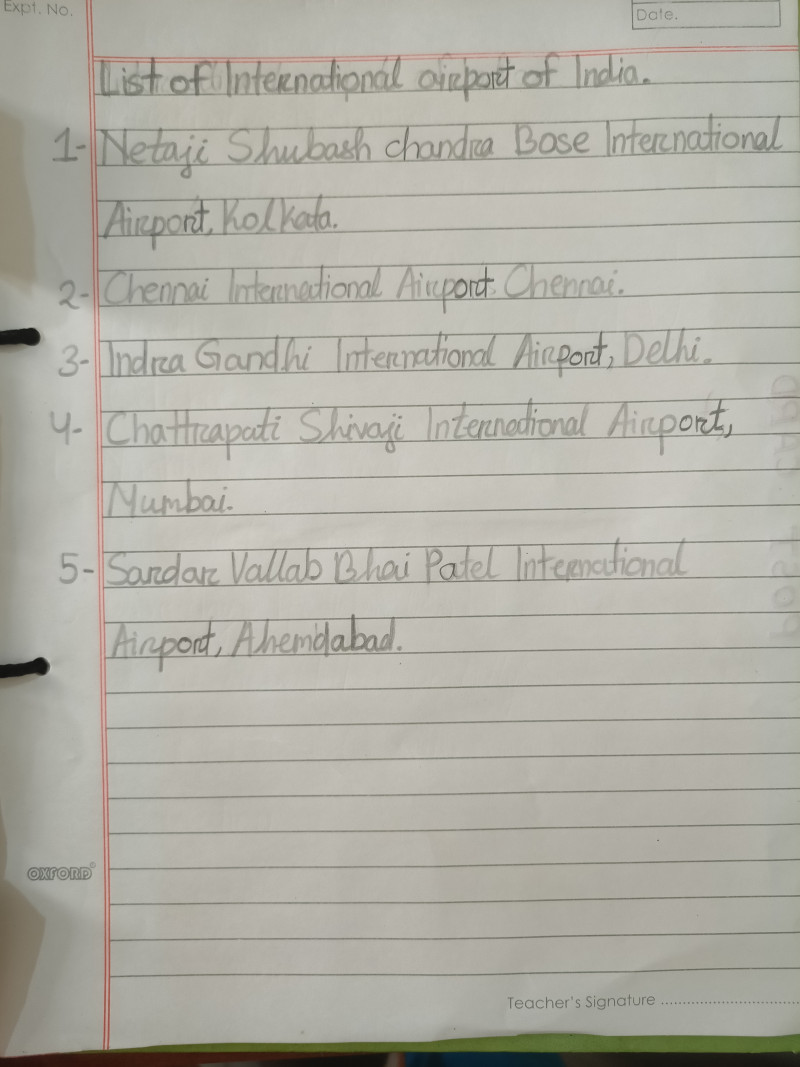 Expt. No.
Date.
List of International airport of India.
1- Netaji Shubash chandra Bose International
Airport, Kolkata.
2- Chennai International Airport Chennai.
3- Indra Gandhi International Airport, Delhi.
4- Chattrapati Shivaji International Airport,
Mumbai.
5- Sardar Vallab Bhai Patel International
Airport, Ahemdabad.
OXFORD
Teacher's Signature